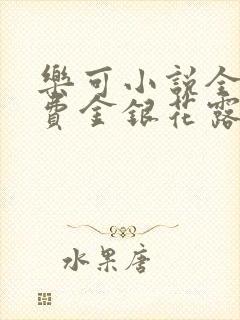 樂可小説全
費金銀花露
水果唐